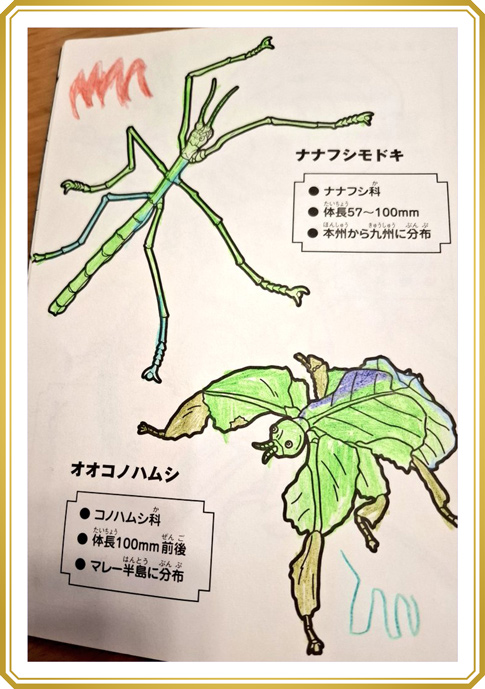 ナナフシモドキ
● ナナフシ科
● 体長57〜100mm
● 本州から九州に分布
オオコノハムシ
● コノハムシ科
● 体長100mm前後
● マレー半島に分布